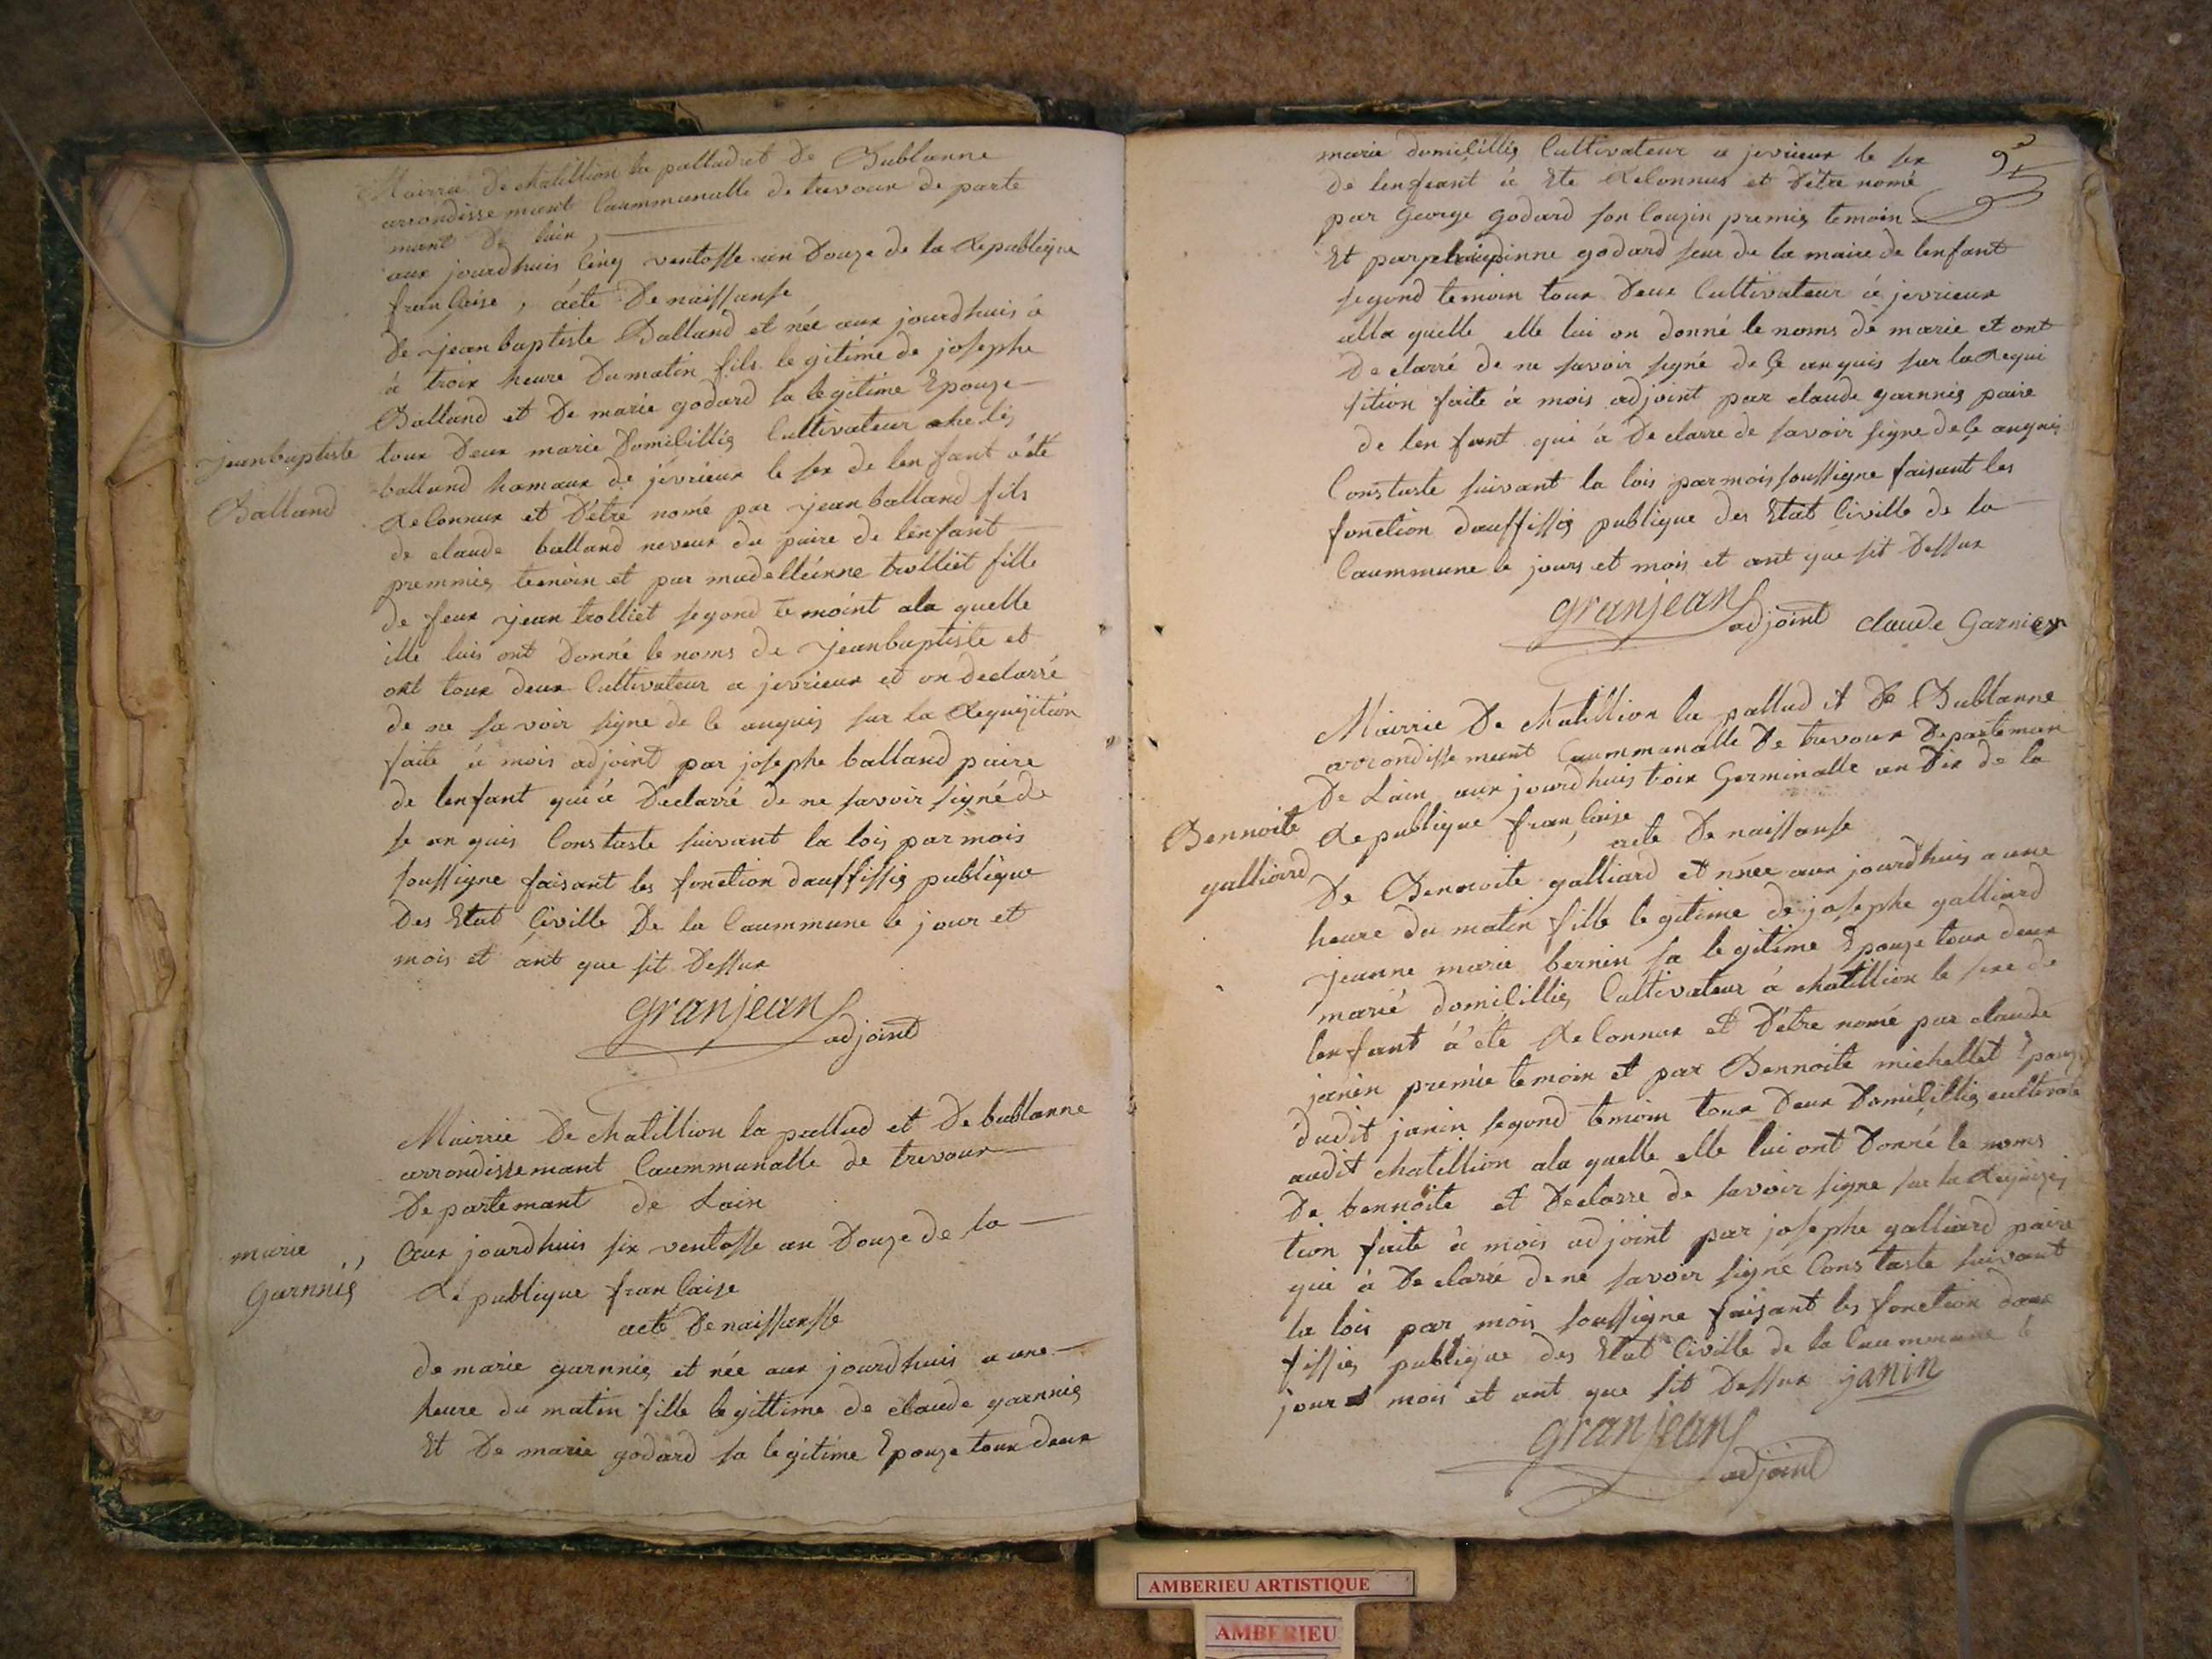 Mairrie De chatillion la palludet De Bublanne
arrondissemant Caummunalle de trevoux de parte
mant De lain
aux jourdhuis Cinq ventosse an Douze de la Republiqne
francaise, acte De naissanse
De jeanbaptiste Balland et née aux jourdhuis á
á troix heure Dumatin fils legitime de josephe
Balland et De marie godard sa legitime Epouze
toux Deux marie Domicilliés Cultivateur
jeanbaptiste
Balland
balland hamaux de jévrieux le sex de lenfant à été
Reconnux et D'etre nomé par jean balland fils
de claude balland neveux du paire de lenfant
premmiés temoin et par madelleinne trolliet fille
de feux jean trolliet segond temoint ala quelle
ille luis ont Donné le noms de jeanbaptiste et
ont toux deux Cultivateur a jevrieux et on declarré
de ne savoir signe de Ce anquis sur la Requizition
faite á mois adjoint par josephe balland paire
de lenfant qui á Declarré de ne savoir signé de
se anquis Constaste suivant la lois par mois
soussigne faisant les fonction dauffissiés publique
Des Etat Civille De la Caummune le jour et
mois et ant que sit Dessux
granjean
adjoint
Mairrie De chatillion la pallud et De bublanne
arrondissemant Caummunalle de trevoux
Departemant de Lain
marie
Garnniés
Aux jourdhuis six ventosse an Douze de la
République francaise
acte De naissansse
de marie garnniés et née aux jourdhuis a une
heure du matin fille legittime de claude garnniés
Et De marie godard sa legitime Epouze toux deux
9e
marie domicilliés Cultivateur a jevrieux le sex
de lenfeant á Ete Reconnus et D'etre nomé
par George godard son Couzin premiés temoin
Et par godard seur de la maire de lenfant
segond temoin toux Deux Cultivateur á jevrieux
alla quelle elle lui on donné le noms de marie et ont
Declarré de ne savoir signé de Ce anquis sur la Requi
sition faite á mois adjoint par claude garnniés paire
de lenfant qui á Declarre de savoir signe de Ce anquis
Constaste suivant la lois par mois soussigne faisant les
fonction dauffissiés publique des Etat Civille de la
Caummune le jours et mois et ant que sit Dessux
granjean
adjoint claude Garnier
Mairrie De chatillion la pallud et De Bublanne
arrondissemant Caummunalle De trevoux Departeman
De Lain aux jourdhuis troix Germinalle an Dix de la
Bennoite
galliard
Republique francaise
acte De naissanse
De Bennoite galliard et nnée aux jourdhuis a une
heure du matin fille legitime de josephe galliard
jeanne marie bernin sa legitime Epouze toux deux
marié domicilliés Cultivateur á chatillion le sexe de
lenfant á été Reconnux et D'etre nomé par claude
janin premie temoin et par Bennoite michellet Epouz
dudit janin segond temoin toux Deux Domicilliés cultivate
audit chatillion ala quelle elle lui ont Donné le noms
De bennoite et Declarre de savoir signe sur la Requizi
tion faite á mois adjoint par josephe galliard paire
qui á Declarré de ne savoir signé Constaste suivant
la lois par mois soussigne faizant les fonction daux
fissiés publique des Etat Civille de la Caummune le
jour mois et ant que sit Dessux janin
granjean
adjoint
AMBERIEU ARTISTIQUE
AMBERIEU